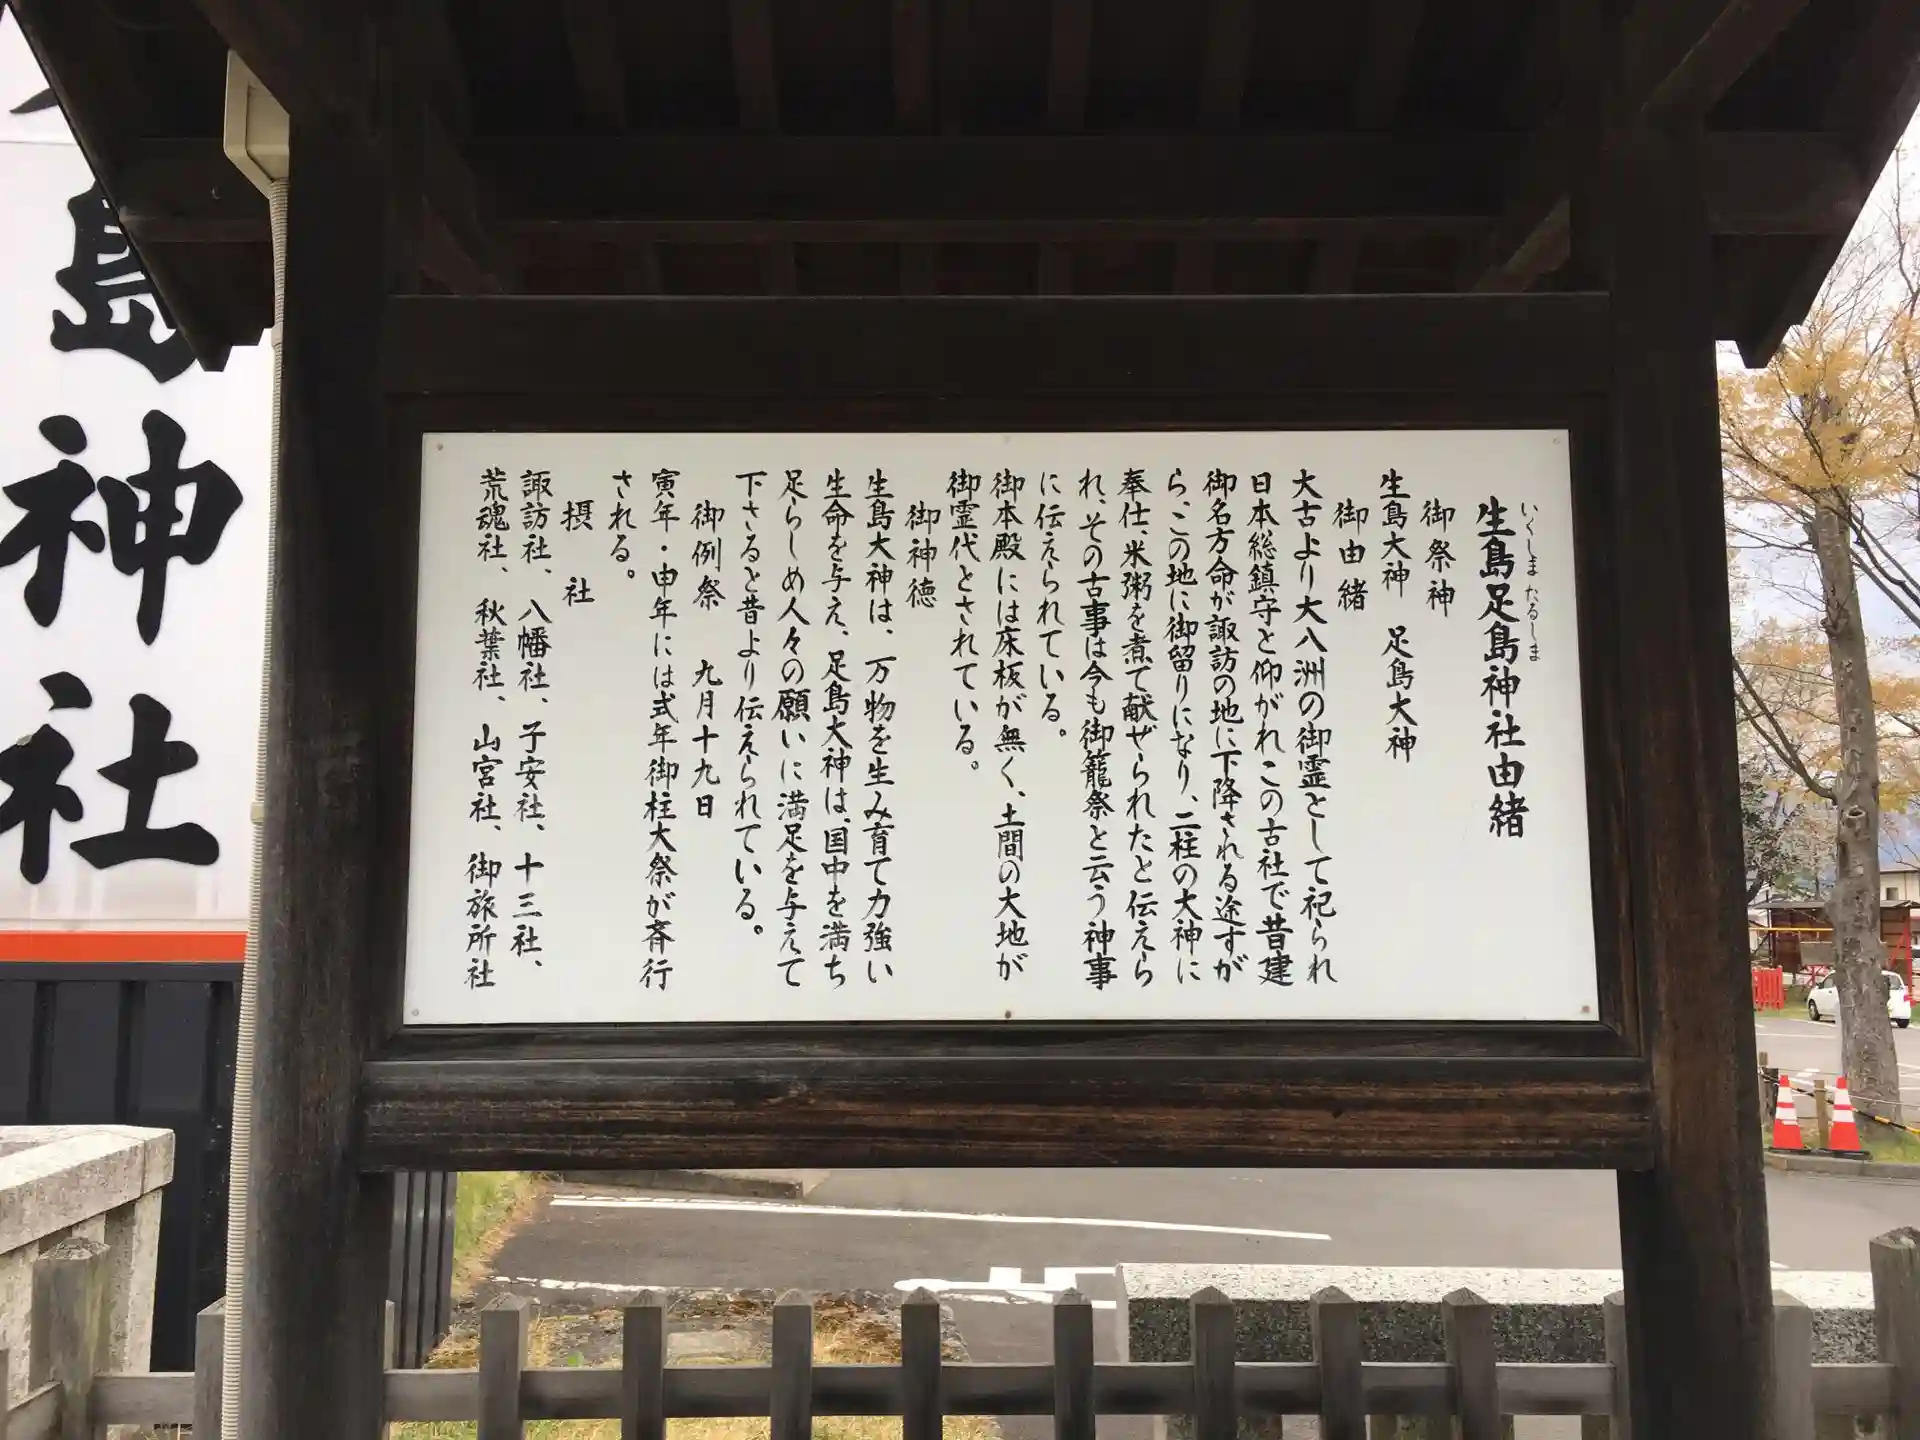 生島足島神社由緒
いくしまたるしま
御祭神
生島大神　足島大神
御由緒
大古より大八洲の御霊として祀られ
日本総鎮守と仰がれこの古社で昔建
御名方命が諏訪の地に下降される途すが
ら、この地に御留りになり、二柱の大神に
奉仕、米粥を煮て献ぜられたと伝えら
れ、その古事は今も御籠祭と云う神事
に伝えられている。
御本殿には床板が無く、土間の大地が
御霊代とされている。
御神徳
生島大神は、万物を生み育て力強い
生命を与え、足島大神は、国中を満ち
足らしめ人々の願いに満足を与えて
下さると昔より伝えられている。
御例祭　九月十九日
寅年・申年には式年御柱大祭が斉行
される。
摂　社
諏訪社、八幡社、子安社、十三社、
荒魂社、秋葉社、山宮社、御旅所社
島神社